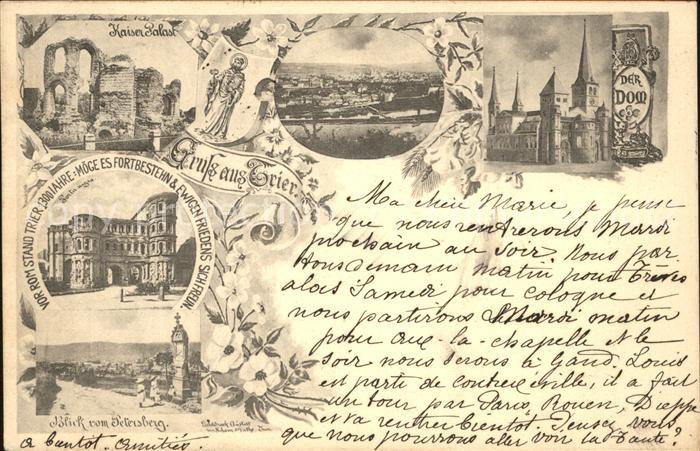 Kaiser Palast
DER
DOM
Gruß aus Trier
VOR ROM STAND TRIER 1300 JAHRE - MÖGE ES FORTBESTEHN & EWIGEN FRIEDENS SICH FREUN.
Porta nigra
Blick vom Petersberg.
Ma chère Marie, je pense
que nous rentrerons Mardi
prochain au soir. Nous par
tons demain matin pour Trèves
alors Samedi pour Cologne et
nous partirons Mardi matin
pour Aix-la-chapelle et le
soir nous serons à Gand. Louis
est parti de Contrexéville, il a fait
un tour par Paris, Rouen, Dieppe
et va rentrer bientôt. Pensez vous
que nous pourrons aller voir la Tante?
a bientot. Amitiés.